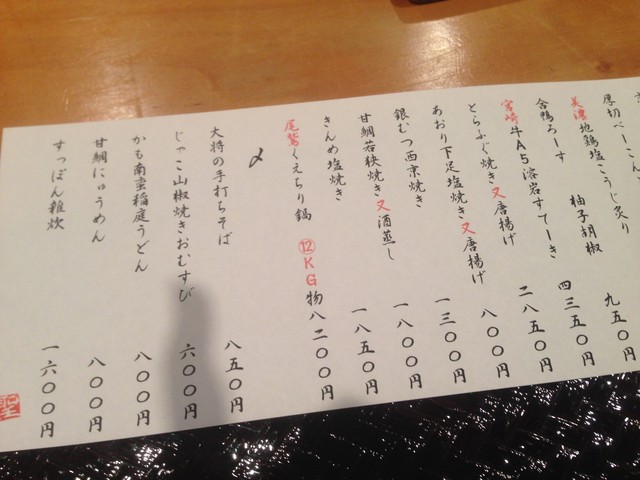 厚切べーこん、
美濃地鶏塩こうじ炙り
合鴨ろーす 柚子胡椒 九五〇円
宮崎牛A5溶岩すてーき 四三五〇円
とらふぐ焼き又唐揚げ 二八五〇円
あおり下足塩焼き又唐揚げ 八〇〇円
銀むつ西京焼き 一三〇〇円
甘鯛若狭焼き又酒蒸し 一八〇〇円
きんめ塩焼き 一八五〇円
尾鷲くえちり鍋 ⑫KG物 八二〇〇円
〆
大将の手打ちそば 八五〇円
じゃこ山椒焼きおむすび 六〇〇円
かも南蛮稲庭うどん 八〇〇円
甘鯛にゅうめん 八〇〇円
すっぽん雑炊 一六〇〇円